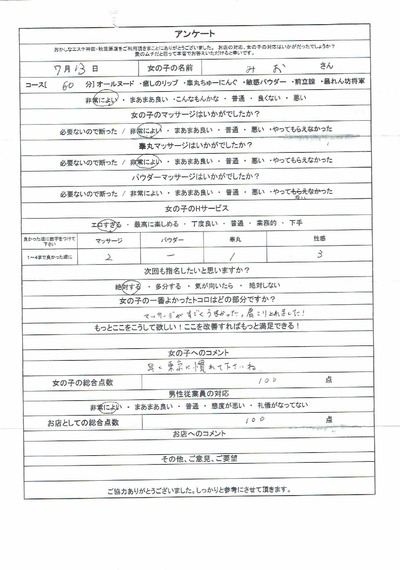 アンケート
おかしなエステ神田・秋葉原店をご利用頂きまことにありがとうございました。 お店の対応、女の子の対応はいかがだったでしょうか?
7月13日 女の子の名前 みお さん
コース[ 60 分]オールヌード ・癒しのリップ ・睾丸ちゅーにんぐ ・敏感パウダー ・前立腺 ・暴れん坊将軍
非常によい ・ まあまあ良い ・こんなもんかな ・ 普通 ・ 良くない ・ 悪い
女の子のマッサージはいかがでしたか?
必要ないので断った / 非常によい ・ まあまあ良い ・ 普通 ・ 悪い ・やってもらえなかった
睾丸マッサージはいかがでしたか?
必要ないので断った / 非常によい ・ まあまあ良い ・ 普通 ・ 悪い ・やってもらえなかった
パウダーマッサージはいかがでしたか?
必要ないので断った / 非常によい ・ まあまあ良い ・ 普通 ・ 悪い ・やってもらえなかった
女の子のHサービス
エロすぎる ・ 最高に楽しめる ・ 丁度良い ・ 普通 ・ 業務的 ・ 下手
良かった順に数字をつけて下さい マッサージ パウダー 睾丸 性感
1~4まで良かった順に 2 ー 1 3
次回も指名したいと思いますか?
絶対する ・ 多分する ・ 気が向いたら ・ 絶対しない
女の子の一番よかったトコロはどの部分ですか?
マッサージがすごくうまかった。肩こりとれました!
もっとここをこうして欲しい!ここを改善すればもっと満足できる!
女の子へのコメント
早く東京に慣れて下さいね
女の子の総合点数 100 点
男性従業員の対応
非常によい ・ まあまあ良い ・ 普通 ・ 態度が悪い ・ 礼儀がなってない
お店としての総合点数 100 点
お店へのコメント
その他、ご意見、ご要望
ご協力ありがとうございました。しっかりと参考にさせて頂きます。